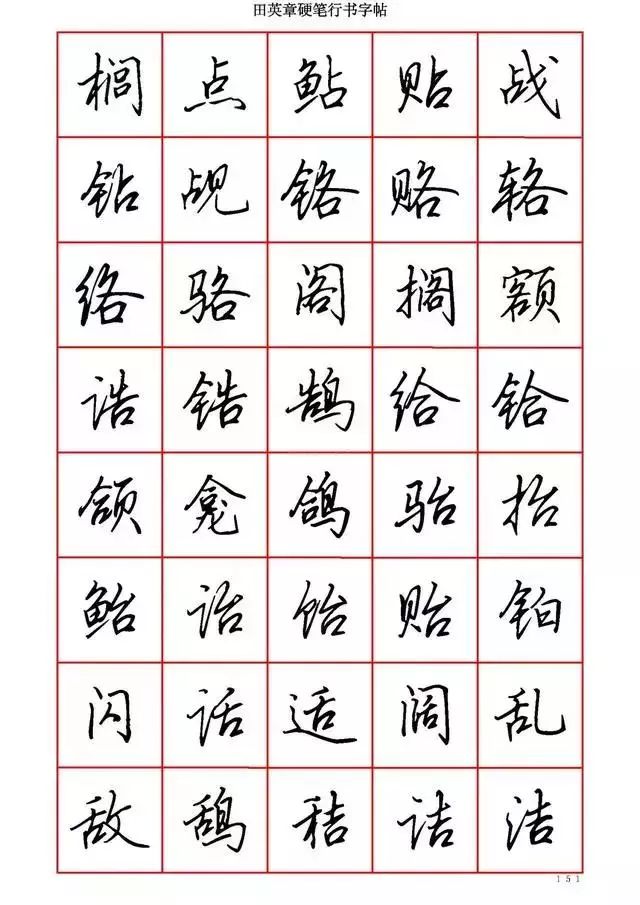 田英章硬笔行书字帖
榈点鲇贴战
钻觇铬赂辂
络骆阁搁额
诰锆鹄给铪
颌龛鸽骀抬
鲐诒饴贻铂
闪话适阔乱
敌鸹秸诘洁
151